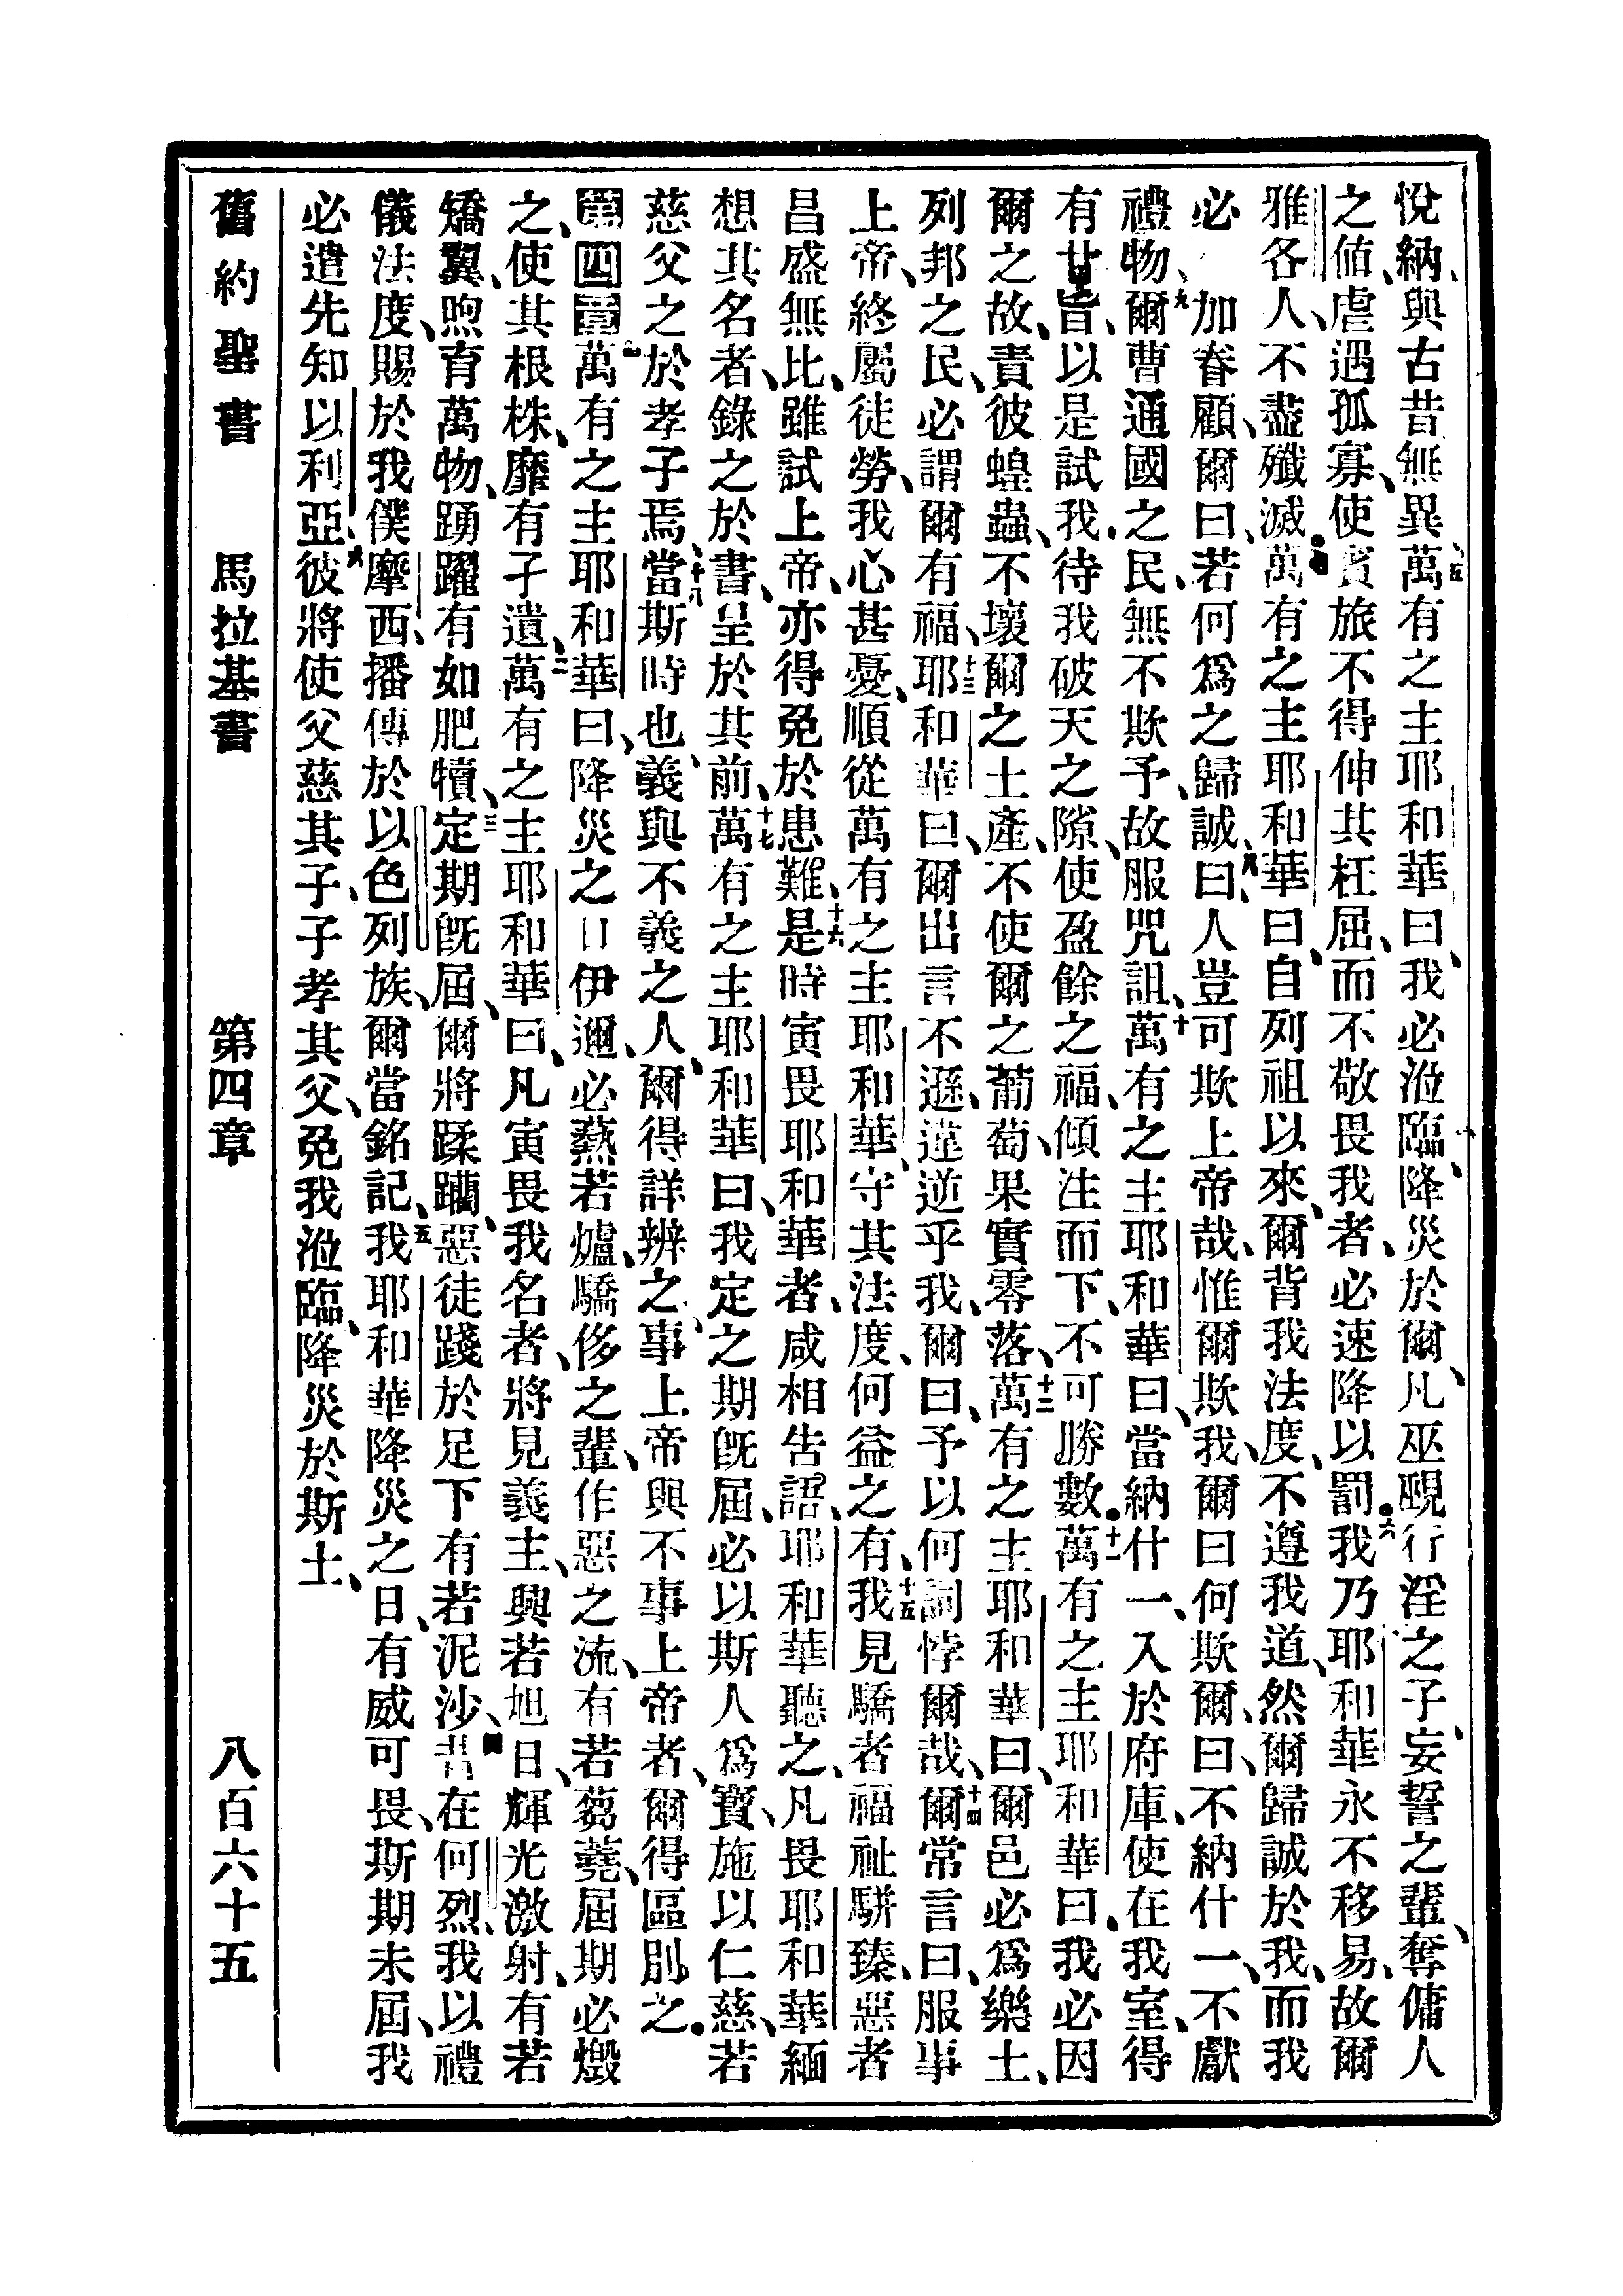 悅納、與古昔無異、五萬有之主耶和華曰、我必涖臨、降災於爾、凡巫覡行淫之子、妄誓之輩、奪傭人
之値、虐遇孤寡、使賓旅不得伸其枉屈、而不敬畏我者、必速降以罰、六我乃耶和華永不移易、故爾
雅各人、不盡殲滅、萬有之主耶和華曰、自列祖以來、爾背我法度、不遵我道、然爾歸誠於我、而我
必加眷顧、爾曰、若何爲之歸誠、八曰、人豈可欺上帝哉、惟爾欺我、爾曰何欺爾、曰、不納什一、不獻
禮物、九爾曹通國之民、無不欺予、故服咒詛、十萬有之主耶和華曰、當納什一、入於府庫、使在我室、得
有甘旨、以是試我、待我破天之隙、使盈餘之福、傾注而下、不可勝數、十一萬有之主耶和華曰、我必因
爾之故、責彼蝗蟲、不壞爾之土產、不使爾之葡萄果實零落、十二萬有之主耶和華曰、爾邑必爲樂土、
列邦之民、必謂爾有福、十三耶和華曰、爾出言不遜、違逆乎我、爾曰、予以何詞悖爾哉、十四爾常言曰、服事
上帝、終屬徒勞、我心甚憂、順從萬有之主耶和華、守其法度、何益之有、十五我見驕者福祉駢臻、惡者
昌盛無比、雖試上帝、亦得免於患難、十六是時寅畏耶和華者、咸相告語、耶和華聽之、凡畏耶和華緬
想其名者、錄之於書、呈於其前、十七萬有之主耶和華曰、我定之期旣屆、必以斯人爲寶、施以仁慈、若
慈父之於孝子焉、十八當斯時也、義與不義之人、爾得詳辨之、事上帝與不事上帝者、爾得區別之、
第四章一萬有之主耶和華曰、降災之日伊邇、必爇若爐、驕侈之輩、作惡之流、有若芻蕘、屆期必燬
之、使其根株、靡有孑遺、二萬有之主耶和華曰、凡寅畏我名者、將見義主、興若旭日、輝光激射、有若
矯翼、煦育萬物、踴躍有如肥犢、三定期旣屆、爾將蹂躪惡徒、踐於足下、有若泥沙、四昔在何烈、我以禮
儀法度、賜於我僕摩西、播傳於以色列族、爾當銘記、五我耶和華降災之日、有威可畏、斯期未屆、我
必遣先知以利亞、六彼將使父慈其子、子孝其父、免我涖臨、降災於斯土、
舊約聖書 馬拉基書 第四章 八百六十五